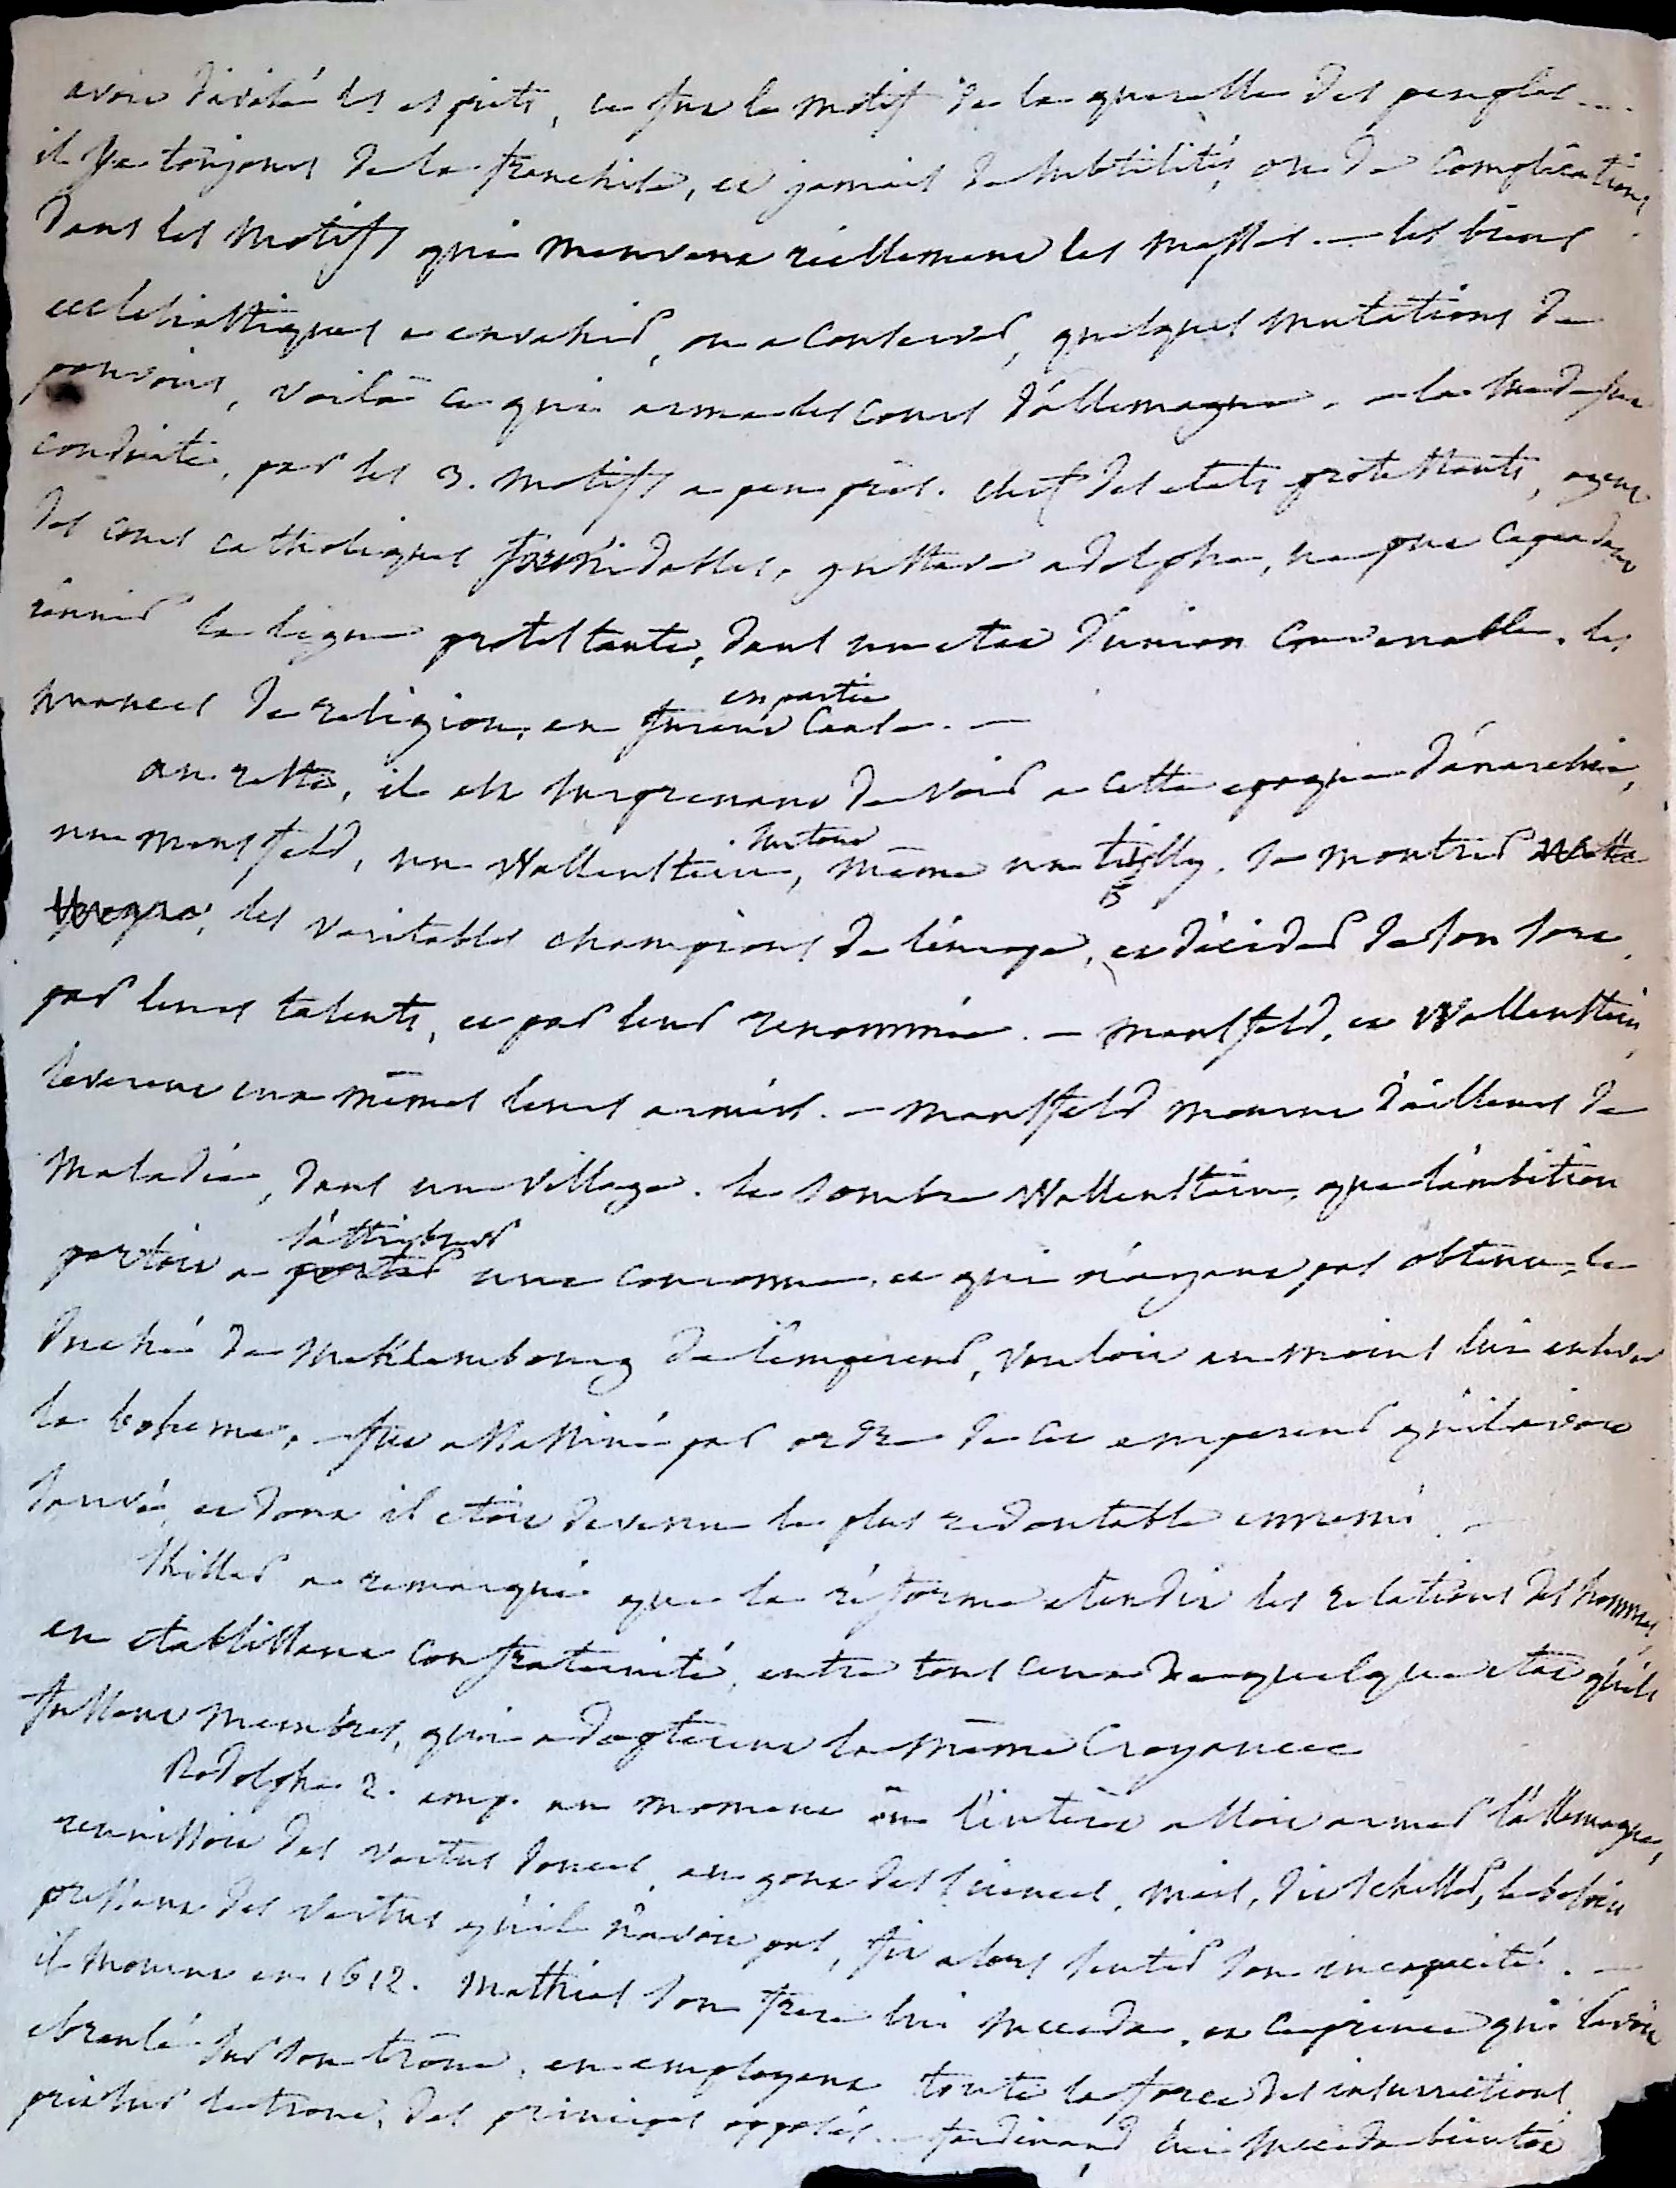 avoir divisé les esprits, ce fut le motif de la querelle des peuples....
il y a toujours de la franchise, et jamais de subtilités, ou de complications
dans les motifs qui meuvent réellement les masses. — les biens
ecclesiastiques a envahir, ou a conserver, quelques mutations de
pouvoirs, voilà ce qui arma les cours d'allemagne. — la suede fut
conduite, par les 3. motifs a peu près. chef des etats protestants, agent
des cours catholiques formidables, gustave adolphe, ne put cependant
réunir la ligue protestante, dans un etat d'union convenable. les
nuances de religion, en furent en partie cause. —
au reste, il est surprenant de voir a cette epoque d'anarchie,
un mansfeld, un Wallenstein, surtout même un tilly, se montrer
les veritables champions de l'europe, et décider de son sort,
par leurs talents, et par leur renommée. — mansfeld, et Wallenstein,
leverent eux mêmes leurs armées. — mansfeld mourut d'ailleurs de
maladie, dans un village. le sombre Wallenstein, que l'ambition
portoit a porter s'attribuer une couronne, et qui n'ayant pas obtenu, le
duché de Meklembourg de l'empereur, vouloit au moins lui enlever
la boheme, fut assassiné par ordre de cet empereur qu'il avoit
sauvé, et dont il etoit devenu le plus redoutable ennemi. —
Shiller a remarqué que la réforme etendit les relations des hommes,
en etablissant confraternité, entre tous ceux de quelque etat qu'ils
fussent membres, qui adopterent la même croyance
Rodolphe 2. emp. au moment où l'intérêt alloit armer l'allemagne,
reunissoit des vertus douces, au gout des sciences, mais, dit schiller, le besoin
pressant des vertus qu'il n'avoit pas, fit alors sentir son incapacité. —
il mourut en 1612. Mathias son frere lui succeda, et ce prince qui l'avoit
ebranlé sur son trône, en employant toute la force des insurrections,
prit sur le trone, des principes opposés. — ferdinand lui succeda bientot